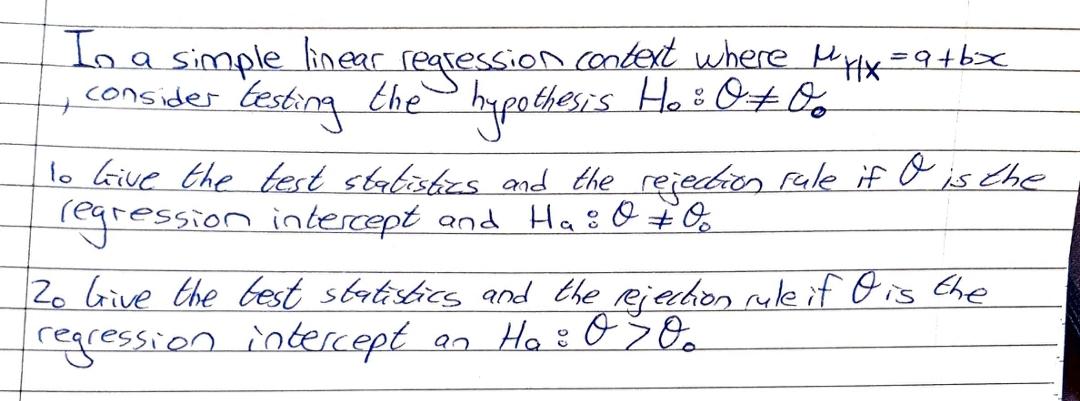 In a simple linear regression context where μ_{Y|X} = a + bx
, consider testing the hypothesis H₀ : θ ≠ θ₀
1. Give the test statistics and the rejection rule if θ is the
regression intercept and Ha : θ ≠ θ₀
2. Give the test statistics and the rejection rule if θ is the
regression intercept an Ha : θ > θ₀